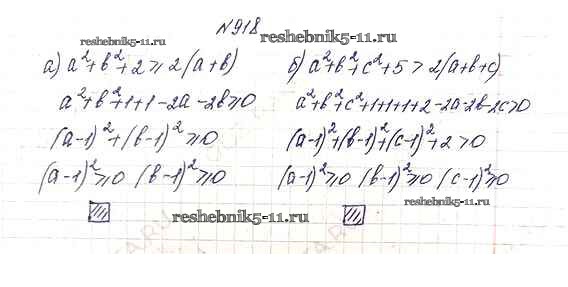 №918
reshebnik5-11.ru
reshebnik5-11.ru
а) a²+b²+2⩾2(a+b)
a²+b²+1+1-2a-2b⩾0
(a-1)²+(b-1)²⩾0
(a-1)²⩾0 (b-1)²⩾0
б) a²+b²+c²+5>2(a+b+c)
a²+b²+c²+1+1+1+2-2a-2b-2c>0
(a-1)²+(b-1)²+(c-1)²+2>0
(a-1)²⩾0 (b-1)²⩾0 (c-1)²⩾0
reshebnik5-11.ru
reshebnik5-11.ru